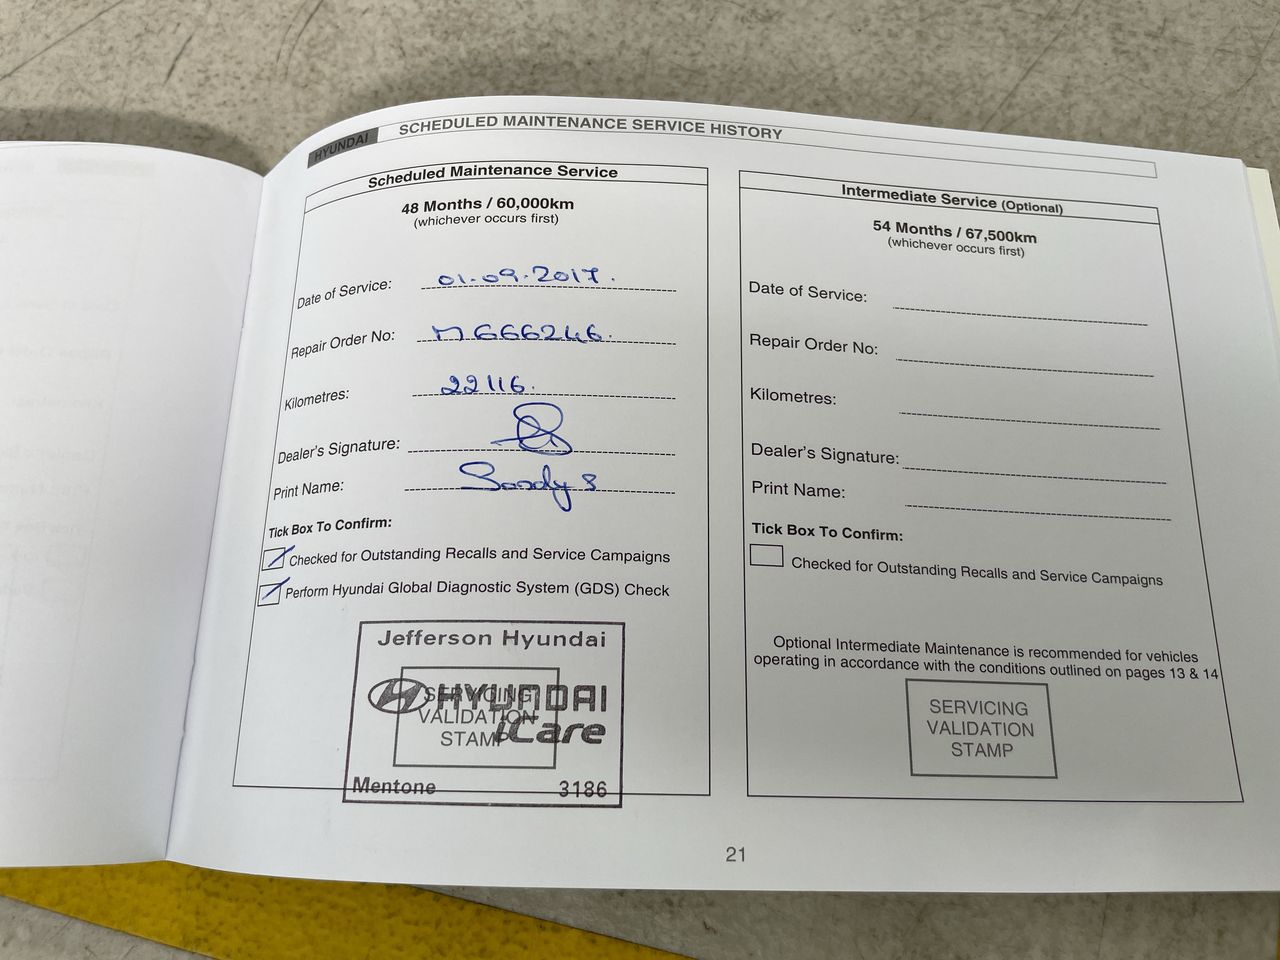 HYUNDAI
SCHEDULED MAINTENANCE SERVICE HISTORY
Scheduled Maintenance Service
48 Months / 60,000km
(whichever occurs first)
Date of Service: 01.09.2017.
Repair Order No: M666246.
Kilometres: 22116.
Dealer's Signature:
Print Name: Sandy S
Tick Box To Confirm:
Checked for Outstanding Recalls and Service Campaigns
Perform Hyundai Global Diagnostic System (GDS) Check
Jefferson Hyundai
HYUNDAI
iCare
SERVICING
VALIDATION
STAMP
Mentone 3186
Intermediate Service (Optional)
54 Months / 67,500km
(whichever occurs first)
Date of Service:
Repair Order No:
Kilometres:
Dealer's Signature:
Print Name:
Tick Box To Confirm:
Checked for Outstanding Recalls and Service Campaigns
Optional Intermediate Maintenance is recommended for vehicles
operating in accordance with the conditions outlined on pages 13 & 14
SERVICING
VALIDATION
STAMP
21